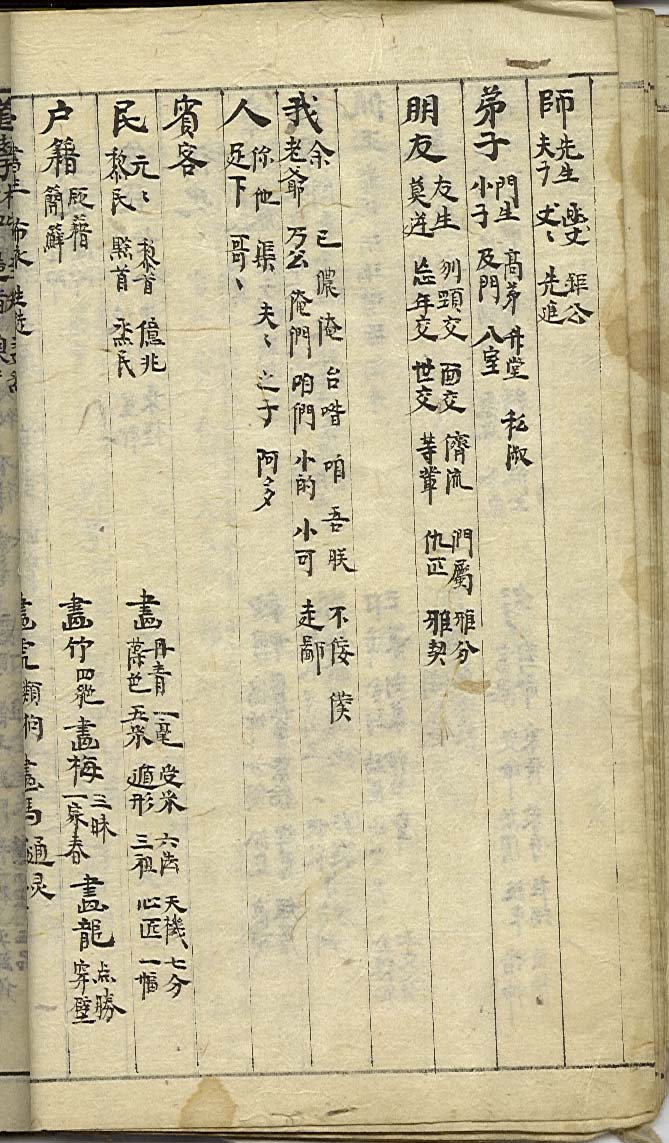 師 先生 夫 丈〻 先進
弟子 門生 小子 高弟 及門 升堂 入室 私淑
朋友 友生 莫逆 刎頸交 忘年交 面交 世交 儕流 等輩 們屬 仇匹 雅分 雅契
我 余 老爺 已 万公 儂 俺 俺們 台 喒 咱們 咱 小的 吾 朕 小可 不佞 僕 走 鄙
人 你 足下 他 渠 哥〻 夫〻 之子 阿多
賓客
民 元〻 黎民 黎首 黔首 億兆 烝民
户籍 版籍
畫 丹青 一毫 五采 受采 遁形 六法 三祖 天機 心匠 七分 一幅
畫竹 四絕 畫梅 三昧 一家春 畫龍 点勝 穿壁
畫虎類狗 畫馬通灵